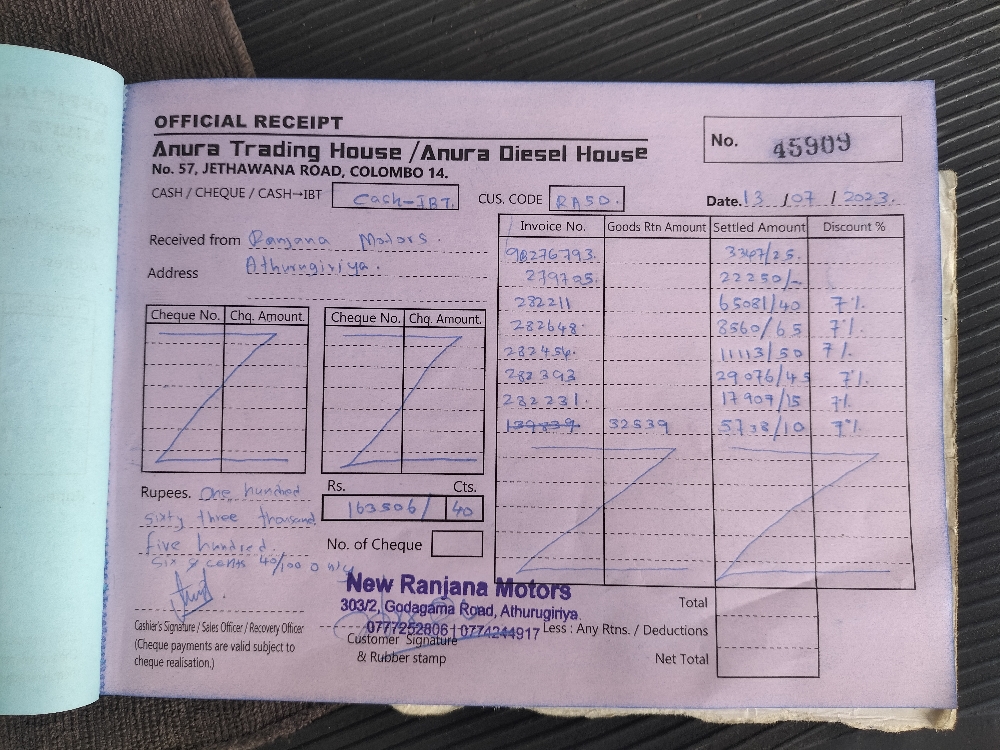 OFFICIAL RECEIPT
Anura Trading House /Anura Diesel House
No. 57, JETHAWANA ROAD, COLOMBO 14.
No. 45909
CASH / CHEQUE / CASH→IBT Cash-IBT. CUS. CODE RA50. Date. 13 / 07 / 2023.
Received from Ranjana Motors.
Address Athurugiriya.
Cheque No. Chq. Amount. Cheque No. Chq. Amount.
Invoice No. Goods Rtn Amount Settled Amount Discount %
98276793. 3367/25.
279705. 22250/-
282211 65081/40 7%
282648. 8560/65 7%.
282456. 11113/50 7%.
282393 29076/45 7%.
282231. 17909/15 7%
139839. 32539 5738/10 7%
Rupees. One hundred
sixty three thousand
five hundred
six & cents 40/100 only
Rs. Cts.
163506/ 40
No. of Cheque
New Ranjana Motors
303/2, Godagama Road, Athurugiriya.
0777252806 | 0774244917
Cashier's Signature / Sales Officer / Recovery Officer
(Cheque payments are valid subject to
cheque realisation.)
Customer Signature
& Rubber stamp
Total
Less : Any Rtns. / Deductions
Net Total